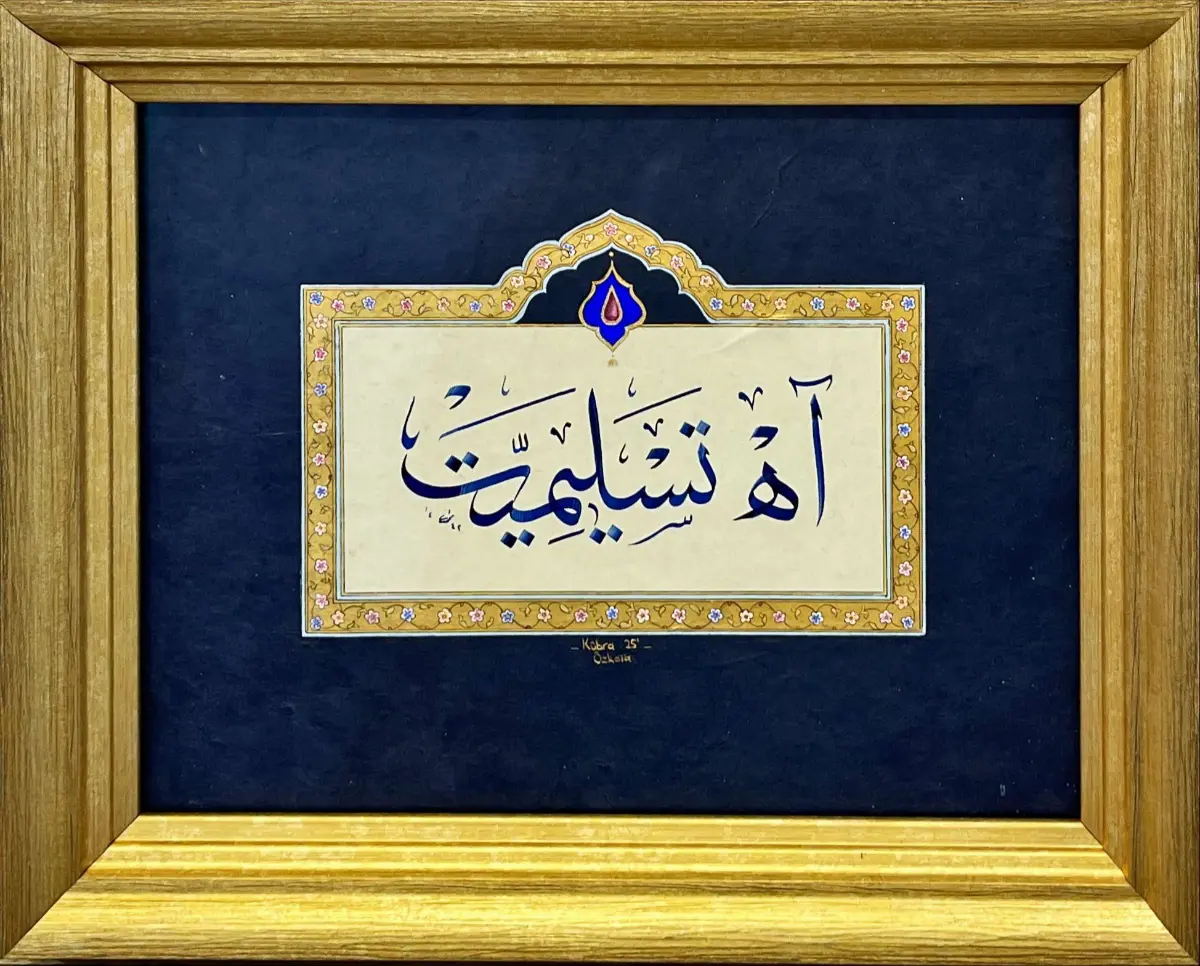 آه تسليميت
– Kübra 25' –
Özkaya